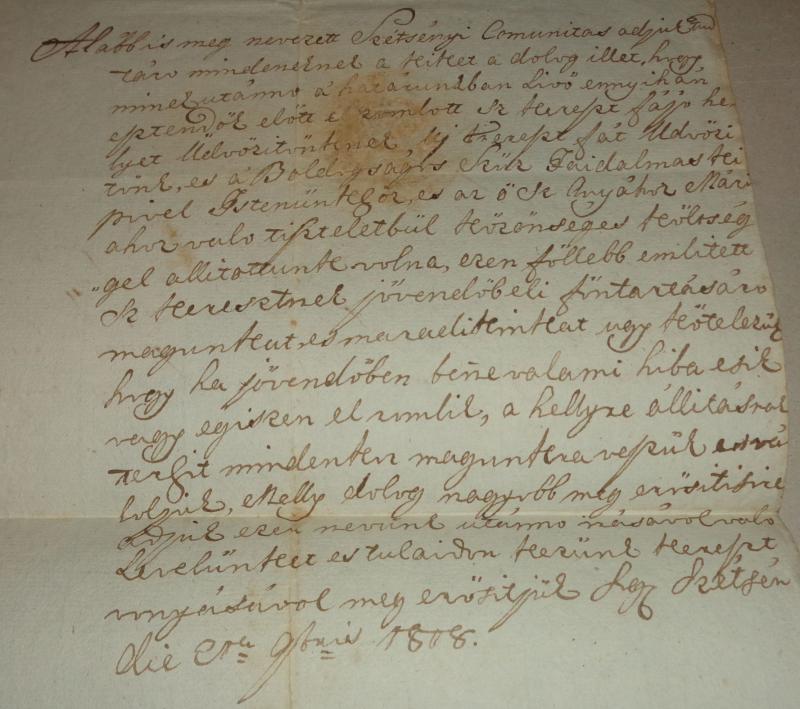 Alabb is meg nevezett Szétsényi Comunitas adjuk tud
táro mindeneknek a kiket a dolog illet, hogy
minekutánno a határunkban Livö ennyihán
esztendök elött el romlott Sz kereszt fájjo he
lyet Udvözitönknek, Uj kereszt fát Udvözi
tönk, es a Boldogságos Szüz Faidalmas ké
pivel Istenünkhöz, es az ö Sz Anyához Mári
ahoz valo tiszteletbül közönséges költség
"gel allitottunk volna, ezen föllebb emlitett
Sz keresztnek jövendöbeli föntartásáro
magunkat, es maradikinkat ugy kötelezük
hogy ha jövendöben benne valami hiba esik
vagy egiszen el romlik, a hellyre állitásnak
terhit mindenkor magunkra veszük es vá
loljuk, Melly dolog nagyobb meg erösitisire
adjuk ezen nevünk utánno irásával valo
Levelünket es tulaidon kezünk kereszt
vonyásával meg erösitjük Sig Szétsén
die 2da 9bris 1808.